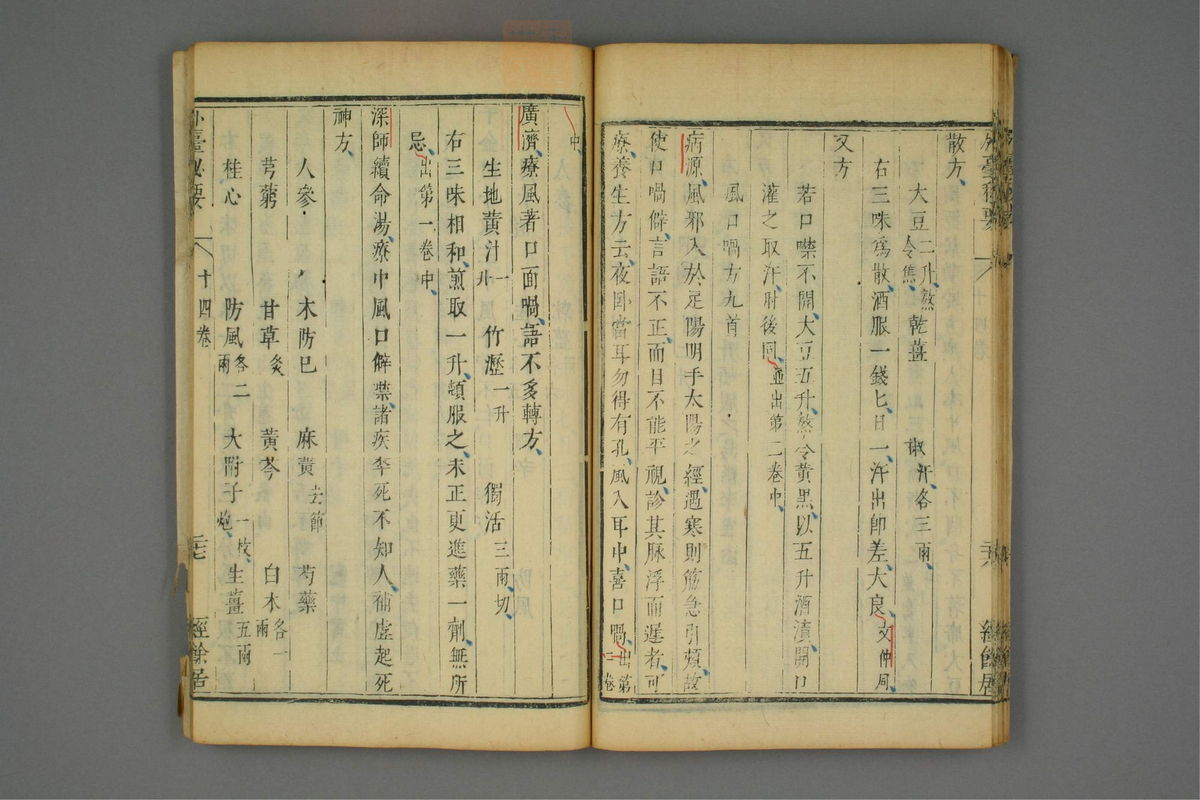 外臺秘要
經餘居
散方
大豆二升熬令焦乾薑 椒汗各三兩
右三味爲散酒服一錢匕日一汗出卽差大良文仲同
又方
若口噤不開大豆五升熬令黃黑以五升酒漬開口
灌之取汗肘後同並出第二卷中
風口喎方九首
病源風邪入於足陽明手太陽之經遇寒則筋急引頰故
使口喎僻言語不正而目不能平視診其脉浮而遲者可
療養生方云夜臥當耳勿得有孔風入耳中喜口喎出第一卷
中
廣濟療風著口面喎語不多轉方
生地黃汁一升 竹瀝一升 獨活三兩切
右三味相和煎取一升頓服之未正更進藥一劑無所
忌出第一卷中
深師續命湯療中風口僻噤諸疾卒死不知人補虛起死
神方
人參 木防巳 麻黃去節 芍藥
芎藭 甘草炙 黃芩 白朮各一兩
桂心 防風各二兩 大附子一枚炮 生薑五兩
外臺秘要
十四卷
二七
經餘居